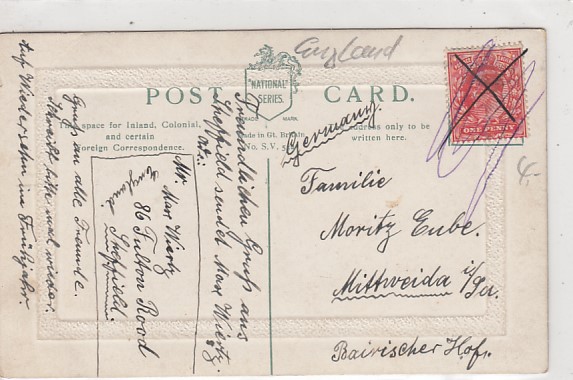 England
POST CARD.
"NATIONAL"
SERIES.
TRADE MARK.
The space for Inland, Colonial,
and certain
Foreign Correspondence.
Made in Gt. Brit
No. S.V.
address only to be
written here.
ONE PENNY
Germany.
Familie
Moritz Eube.
Mittweida i/Sa.
Bairischer Hof.
Freundlichen Gruß aus
Sheffield sendet Max Wiertz.
Mr. Max Wiertz
86 Fulton Road
Sheffield.
England
Gruß an alle Freunde.
Schreibt bitte mal wieder.
Auf Wiedersehn im Frühjahr